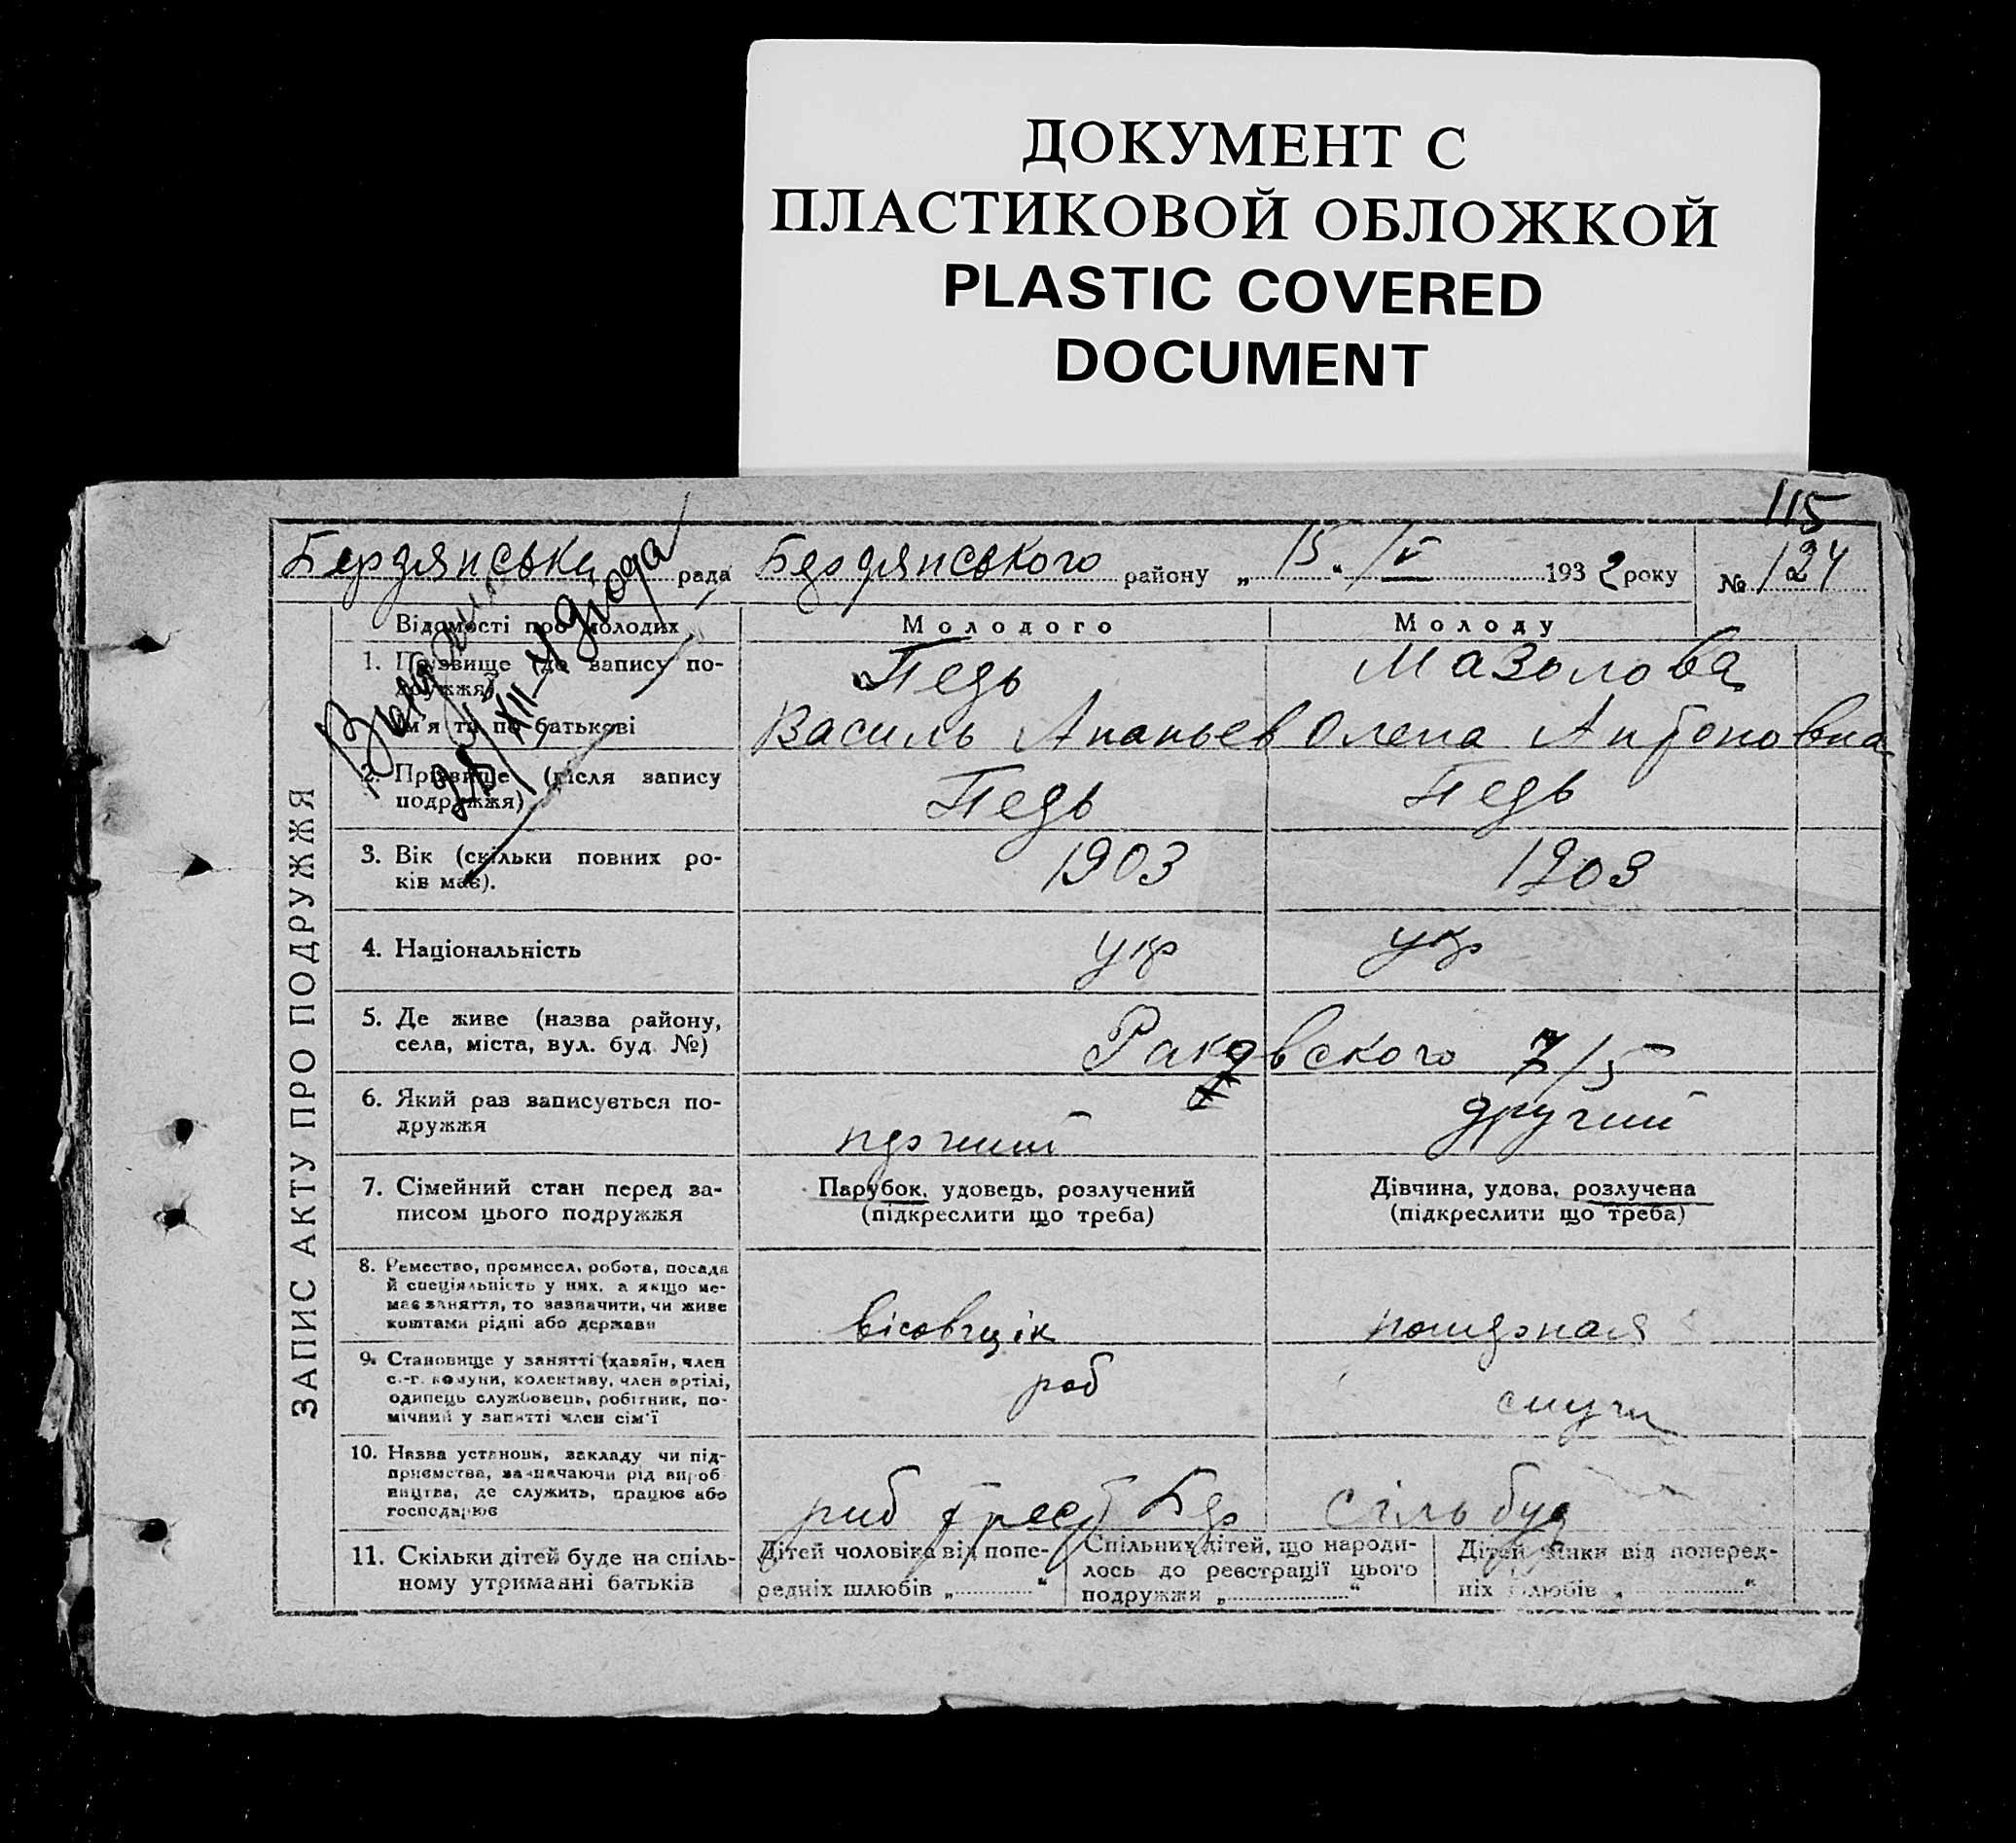 ДОКУМЕНТ С
ПЛАСТИКОВОЙ ОБЛОЖКОЙ
PLASTIC COVERED
DOCUMENT
115
Бердянська рада Бердянського району „ 15 “ IV 1932 року № 124
ЗАПИС АКТУ ПРО ПОДРУЖЖЯ
Відомості про молодих Молодого Молоду
1. Прізвище (до запису по-
дружжя) Педь Мазолова
Ім'я та по батькові Василь Ананьев Олена Антоновна
2. Прізвище (після запису
подружжя) Педь Педь
3. Вік (скільки повних ро-
ків має). 1903 1903
4. Національність укр укр
5. Де живе (назва району,
села, міста, вул. буд. №) Раковского 7/5
6. Який раз записується по-
дружжя перший другий
7. Сімейний стан перед за-
писом цього подружжя
Парубок, удовець, розлучений
(підкреслити що треба)
Дівчина, удова, розлучена
(підкреслити що треба)
8. Ремество, промисел, робота, посада
й спеціяльність у них, а якщо не-
має заняття, то зазначити, чи живе
коштами рідні або держави
вісовщік
9. Становище у занятті (хазяїн, член
с.-г. комуни, колективу, член артілі,
одинець службовець, робітник, по-
мічний у занятті член сім'ї
роб служ
10. Назва установи, закладу чи під-
приємства, зазначаючи рід вироб
ництва, де служить, працює або
господарює
риб трест Бер Сільбуд
11. Скільки дітей буде на спіль-
ному утриманні батьків
Дітей чоловіка від попе-
редніх шлюбів „ “
Спільних дітей, що народи-
лось до реєстрації цього
подружжя „ “
Дітей жінки від поперед-
ніх шлюбів „ “